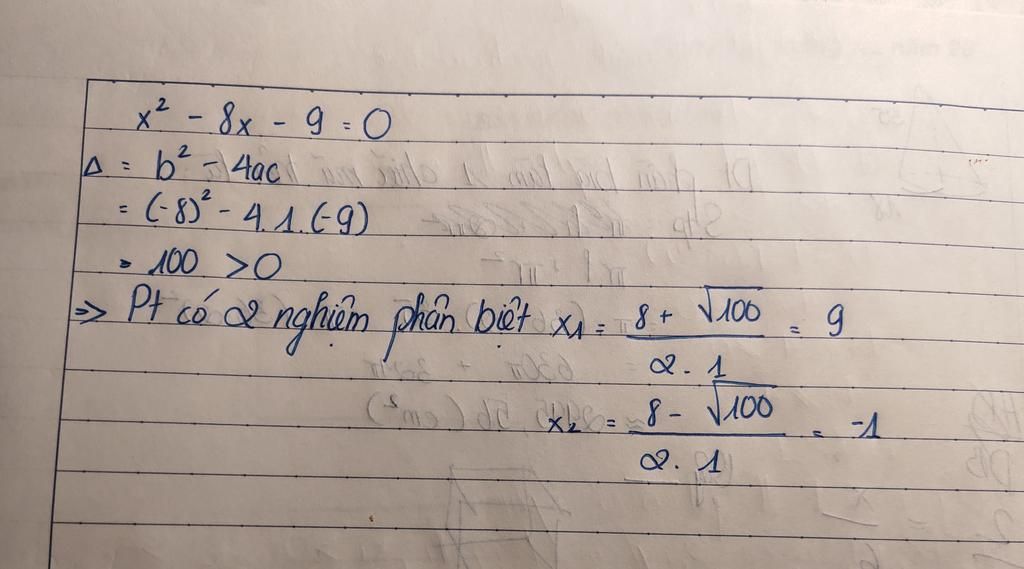 x² - 8x - 9 = 0
Δ = b² - 4ac
= (-8)² - 4.1.(-9)
= 100 > 0
=> Pt có 2 nghiệm phân biệt x₁ = (8 + √100)/(2.1) = 9
x₂ = (8 - √100)/(2.1) = -1